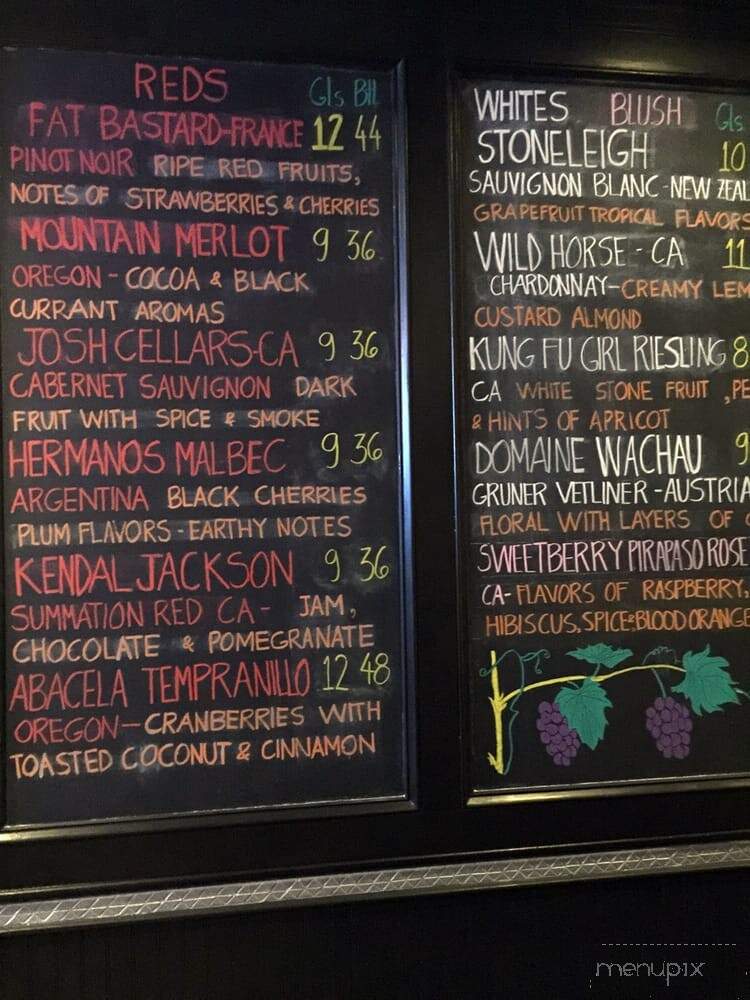 REDS Gls Btl
FAT BASTARD-FRANCE 12 44
PINOT NOIR RIPE RED FRUITS,
NOTES OF STRAWBERRIES & CHERRIES
MOUNTAIN MERLOT 9 36
OREGON - COCOA & BLACK
CURRANT AROMAS
JOSH CELLARS-CA 9 36
CABERNET SAUVIGNON DARK
FRUIT WITH SPICE & SMOKE
HERMANOS MALBEC 9 36
ARGENTINA BLACK CHERRIES
PLUM FLAVORS - EARTHY NOTES
KENDAL JACKSON 9 36
SUMMATION RED CA - JAM,
CHOCOLATE & POMEGRANATE
ABACELA TEMPRANILLO 12 48
OREGON - CRANBERRIES WITH
TOASTED COCONUT & CINNAMON
WHITES BLUSH Gls
STONELEIGH 10
SAUVIGNON BLANC - NEW ZEAL
GRAPEFRUIT TROPICAL FLAVORS
WILD HORSE - CA 11
CHARDONNAY - CREAMY LEM
CUSTARD ALMOND
KUNG FU GIRL RIESLING 8
CA WHITE STONE FRUIT , PE
& HINTS OF APRICOT
DOMAINE WACHAU 9
GRUNER VETLINER - AUSTRIA
FLORAL WITH LAYERS OF
SWEETBERRY PIRAPASO ROSE
CA - FLAVORS OF RASPBERRY,
HIBISCUS, SPICE & BLOOD ORANGE
menupix